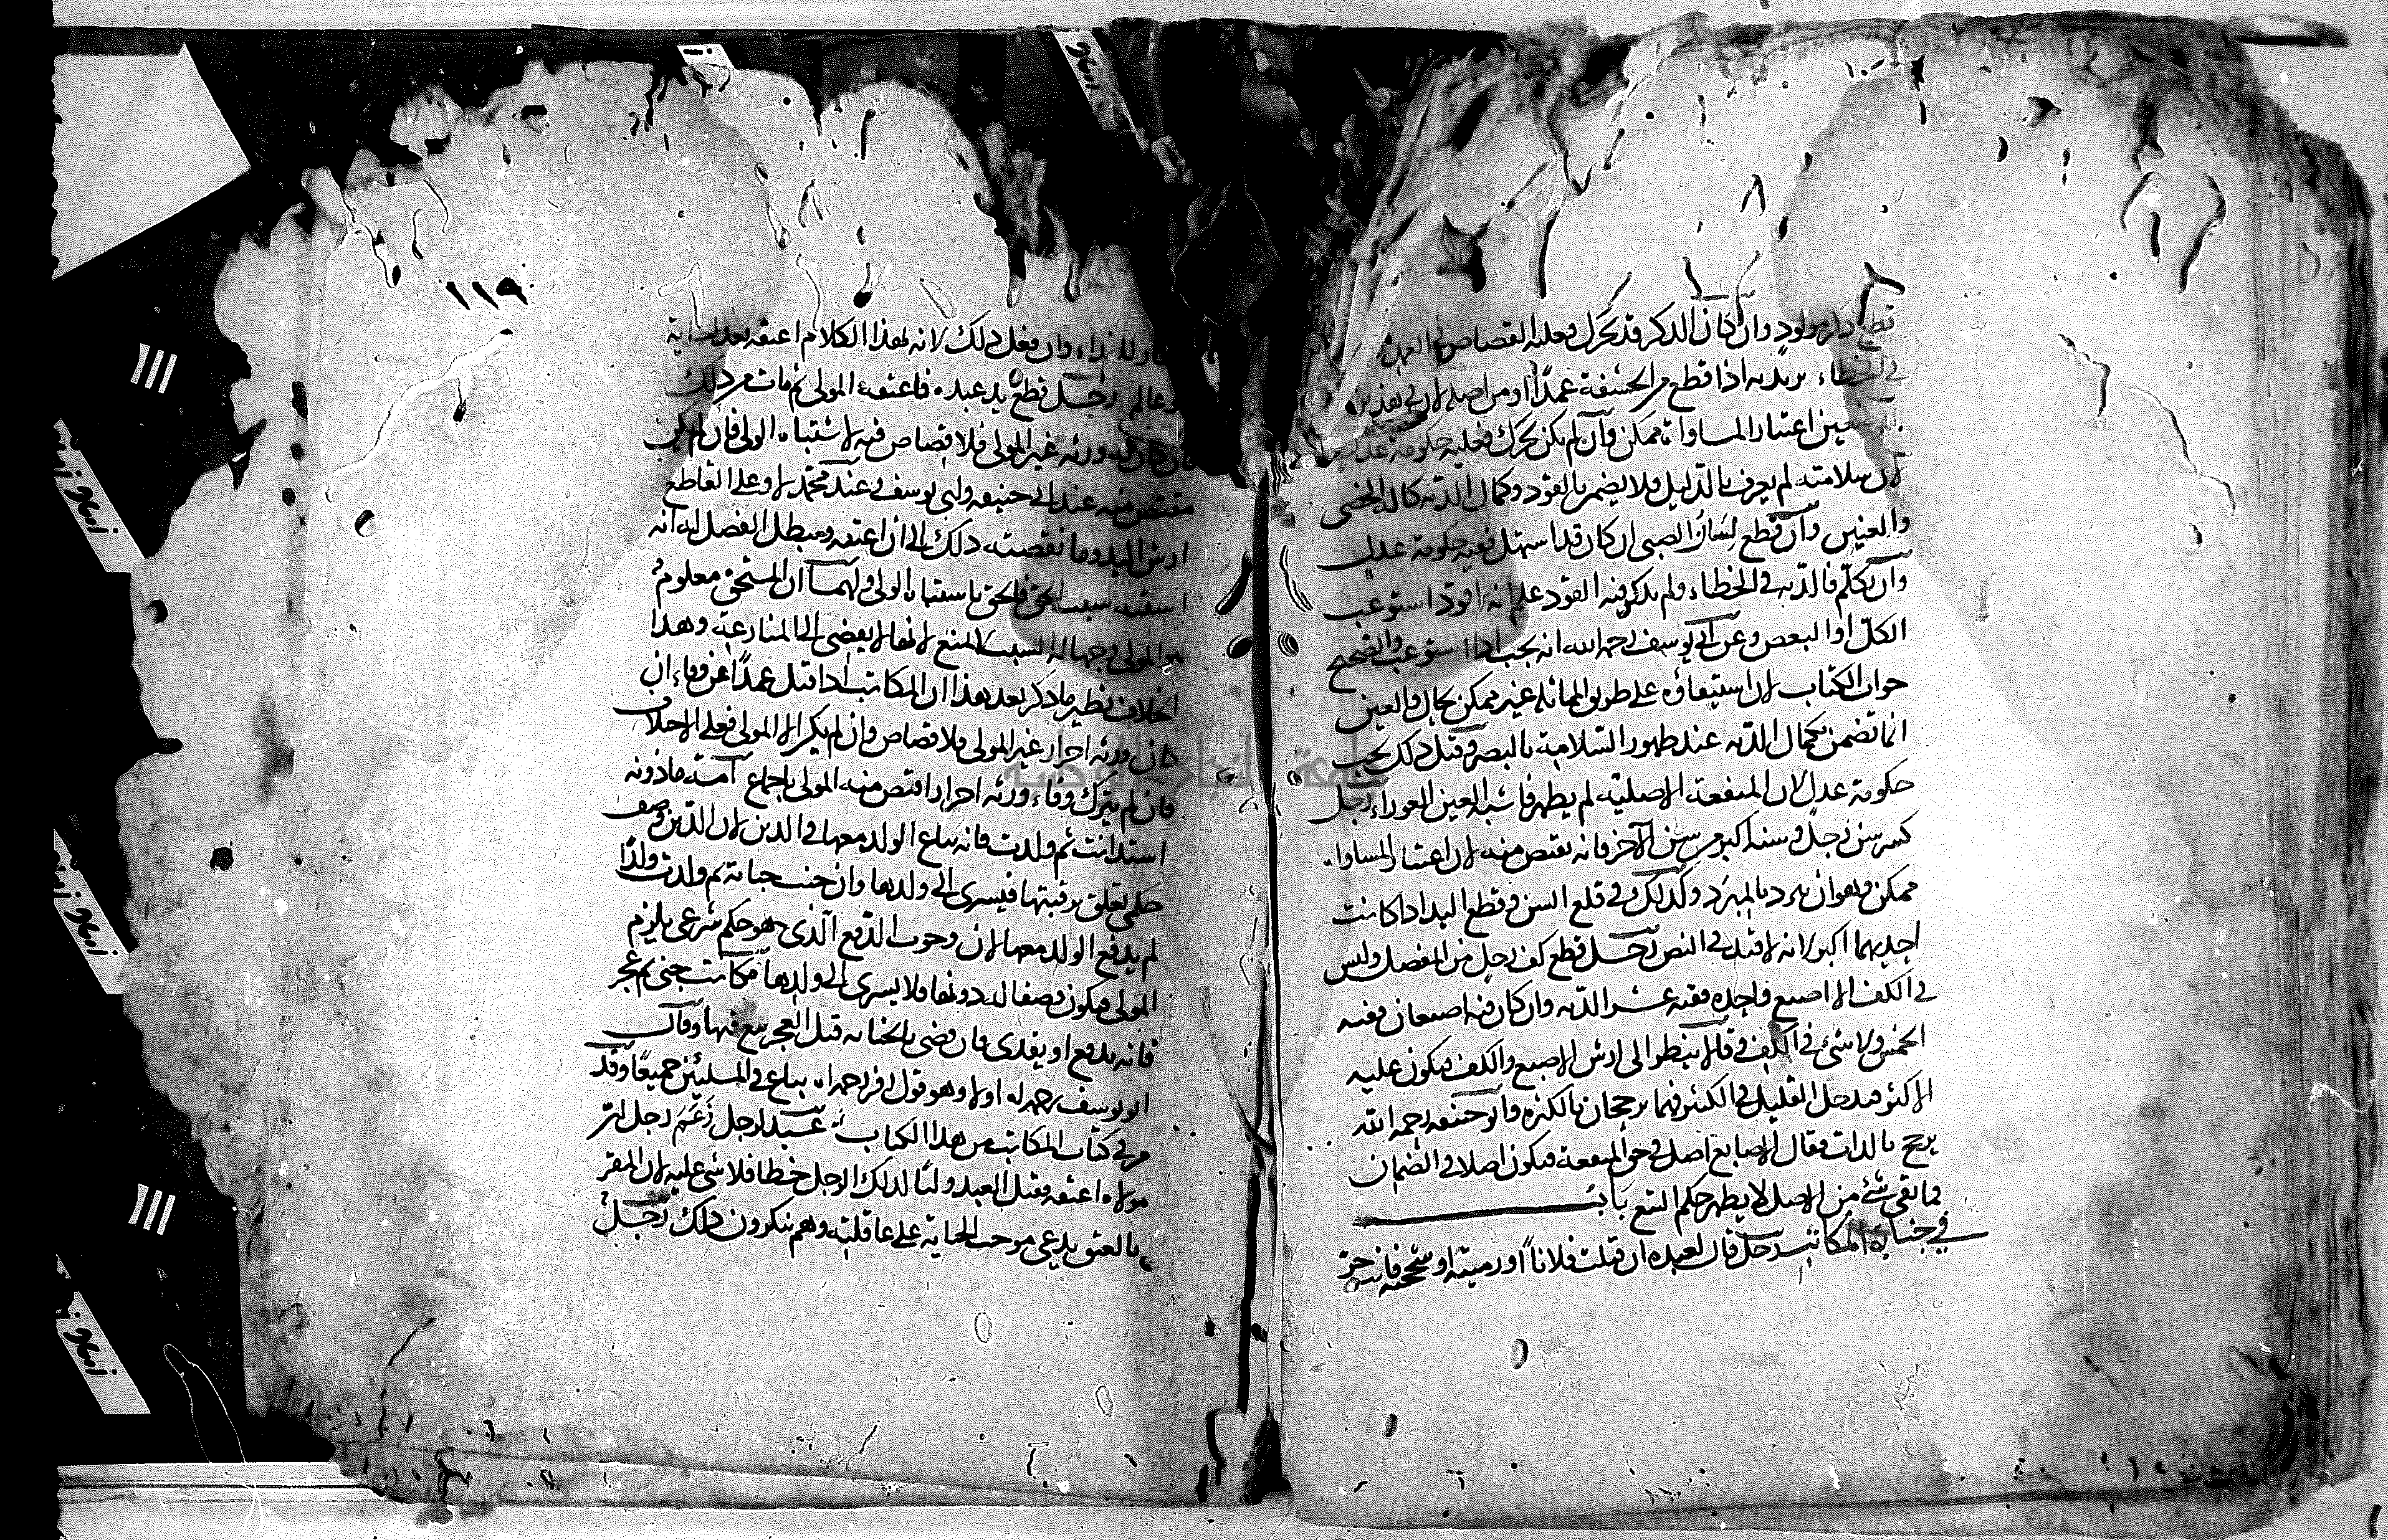 قطع ذكر مولود وان كان الذكر قد تحرك فعليه القصاص في العمد
في الخطاء يريد به اذا قطع من الحشفة عمدا او من اصله لان في تقدير
اعتبار المساواة ممكن وان لم يكن تحرك فعليه حكومة عدل
لان سلامته لم يعرف بالدليل فلا يضمن بالقود وكمال الدية كالة الخصي
والعنين وان قطع لسان الصبي ان كان قد استهل ففيه حكومة عدل
وان تكلم فالدية في الخطاء ولم يذكر فيه القود علم انه لا قود استوعب
الكل او البعض وعن ابي يوسف رحمه الله انه يجب اذا استوعب والصحيح
جواب الكتاب لان استيفاؤه على طريق المماثلة غير ممكن بحال والعين
انما تضمن بكمال الدية عند ظهور السلامة بالبصر وقبل ذلك يجب
حكومة عدل لان المنفعة الاصلية لم يظهر فاشبه العين العوراء رجل
كسر سن رجل وسنه اكبر من سن الآخر فانه يقتص منه لان اعتبار المساواة
ممكن وهو ان يبرد بالمبرد وكذلك في قلع السن وقطع اليد اذا كانت
احديهما اكبر لانه لا قيد في النص رجل قطع كف رجل من المفصل وليس
في الكف الا اصبع واحدة ففيه عشر الدية وان كان فيه اصبعان ففيه
الخمس ولا شيء في الكف وقالا ينظر الى ارش الاصبع والكف فيكون عليه
الاكثر فيدخل القليل في الكثير فهما يرجحان بالكثرة وابو حنيفة رحمه الله
يرجح بالذات فقال الاصابع اصل في حق المنفعة فيكون اصلا في الضمان
فما بقي شيء من الاصل لا يظهر حكم التبع باب
في جناية المكاتب رجل قال لعبده ان قتلت فلانا او رميته او شججته فانت حر
١١٩
للفداء وان فعل ذلك لانه لهذا الكلام اعتقه بعد الجناية
عالم رجل قطع يد عبده فاعتقه المولى ثم مات من ذلك
فان كان له ورثة غير المولى فلا قصاص فيه لاشتباه الولي فان لم يكن
مقتص منه عند ابي حنيفة وابي يوسف وعند محمد لا وعلى القاطع
ارش اليد وما نقصته ذلك الى ان اعتقه ويبطل الفضل له انه
اشتبه سبب الحق فالحق باشتباه الولي ولهما ان المستحق معلوم
هو المولى وجهالة السبب لا يمنع لانها لا يفضي الى المنازعة وهذا
الخلاف نظير ما ذكر بعد هذا ان المكاتب اذا قتل عمدا عن وفاء ان
كان ورثه احرار غير المولى فلا قصاص وان لم يكن الا المولى فعلى الاختلاف
فان لم يترك وفاء وورثه احرار اقتص منه المولى باجماع امة ماذونة
استدانت ثم ولدت فانه يباع الولد معها في الدين لان الدين وصف
حكمي تعلق برقبتها فيسري الى ولدها وان جنت جناية ثم ولدت ولدا
لم يدفع الولد معها لان وجوب الدفع الذي هو حكم شرعي يلزم
المولى فيكون وصفا له دونها فلا يسري الى ولدها مكاتب جنى ثم عجز
فانه يدفع او يفدى فان قضي بالجناية قبل العجز بيع فيها وقال
ابو يوسف رحمه الله اولا وهو قول زفر رحمه الله يباع في المسئلتين جميعا وقد
مر في كتاب المكاتب من هذا الكتاب عبد لرجل زعم رجل ان
مولاه اعتقه فقتل العبد وليا لذلك الرجل خطا فلا شيء عليه لان المقر
بالعتق يدعي موجب الجناية على عاقلته وهم ينكرون ذلك رجل